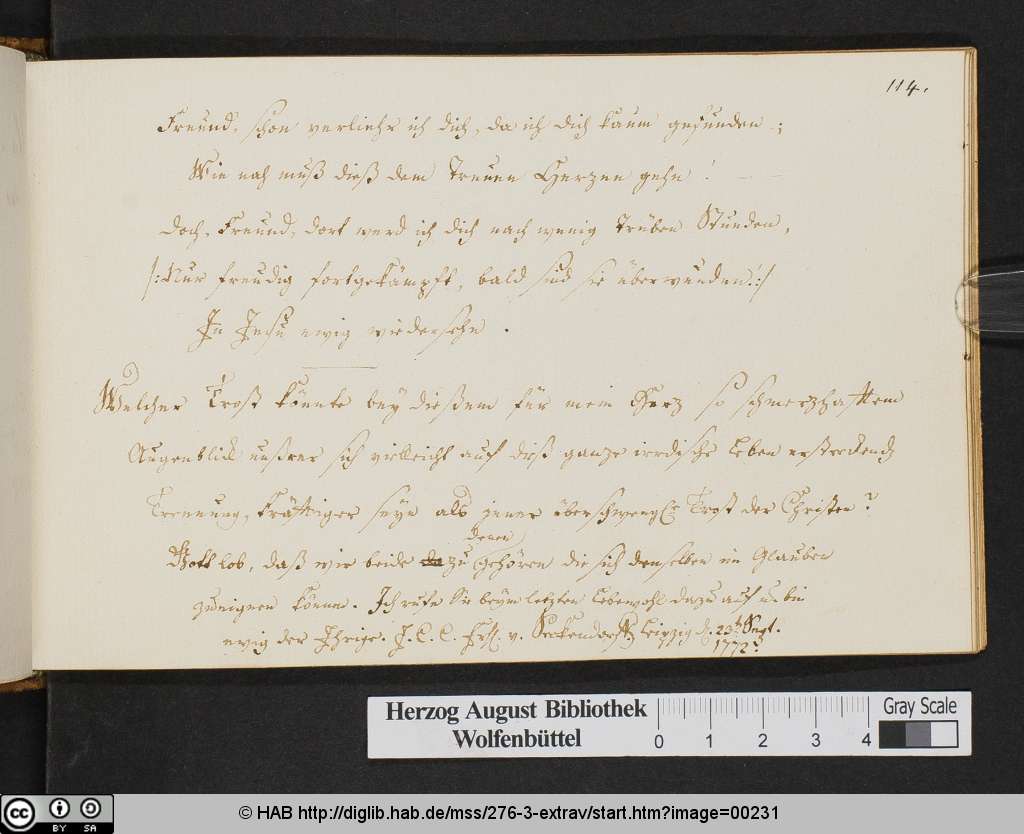 114.
Freund, schon verliehr ich dich, da ich dich kaum gefunden;
Wie nah muß dieß dem treuen Herzen gehn!
doch, Freund, dort werd ich dich nach wenig trüben Stunden,
/:Nur freudig fortgekämpft, bald sind sie überwunden!:/
In Jesu ewig wiedersehn.
Welcher Trost könnte bey dießem für mein Herz so schmerzhafften
Augenblick unßrer sich vielleicht auf diß ganze irrdische Leben erstreckende
Trennung, kräfftiger seyn als jener überschwengl. Trost der Christen?
denen
Gottlob, daß wir beide zu gehören die sich denselben im Glauben
zueignen können. Ich rufe Sie beym letzten Lebewohl dazu auf u. bin
ewig der Ihrige. J. C. C. v. Seckendorff Leipzig d. 23. Sept.
1772.
Herzog August Bibliothek
Wolfenbüttel
0 1 2 3 4
Gray Scale
cc BY SA
© HAB http://diglib.hab.de/mss/276-3-extrav/start.htm?image=00231